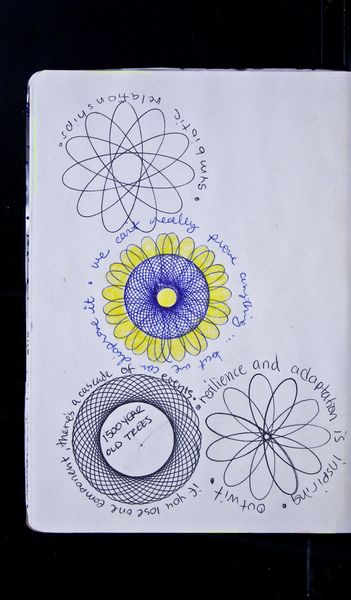 symbiotic relationships.
we can't really prove anything... but we can disprove it.
if you lose one component there's a cascade of events.
1500 YEAR
OLD TREES
resilience and adaptation is inspiring.
outwit.